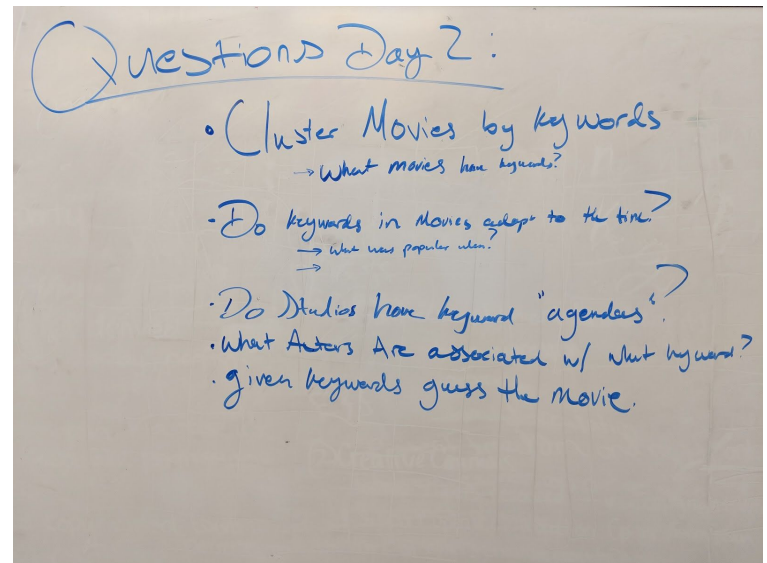 Questions Day 2:
• Cluster Movies by keywords
→ What movies have keywords?
• Do keywords in Movies adapt to the time?
→ What was popular when?
→
• Do Studios have keyword "agendas"?
• What Actors Are associated w/ what keyword?
• given keywords guess the movie.